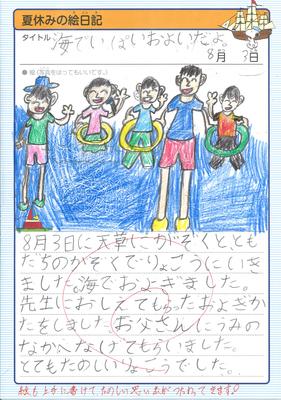 夏休みの絵日記
タイトル 海でいっぱいおよいだよ。
8月 3日
●絵(写真をはってもいいです。)
8月3日に天草にかぞくと、とも
だちのかぞくでりょこうにいき
ました。海でおよぎました。
先生におしえてもらったおよぎか
たをしました。お父さんにうみの
なかへなげてもらいました。
とてもたのしいりょこうでした。
絵も上手に書けて、たのしい思い出がつたわってきます。